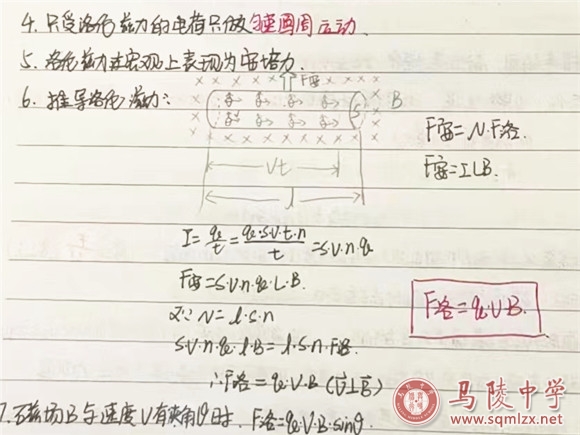 4. 只受洛伦兹力的电荷只做匀速圆周运动.
5. 洛伦兹力在宏观上表现为安培力.
6. 推导洛伦兹力:
F安
B
F安=N·F洛.
F安=ILB.
vt
l
I=q/t=q·sv·t·n/t=s·v·n·q
F安=s·v·n·q·L·B.
又∵N=l·s·n
sv·n·q·l·B=l·s·n·F洛.
F洛=q·v·B.
∴F洛=q·v·B(v⊥B)
7. 磁场B与速度v有夹角θ时, F洛=q·v·B·sinθ.
马陵中学
www.sqmlzx.net